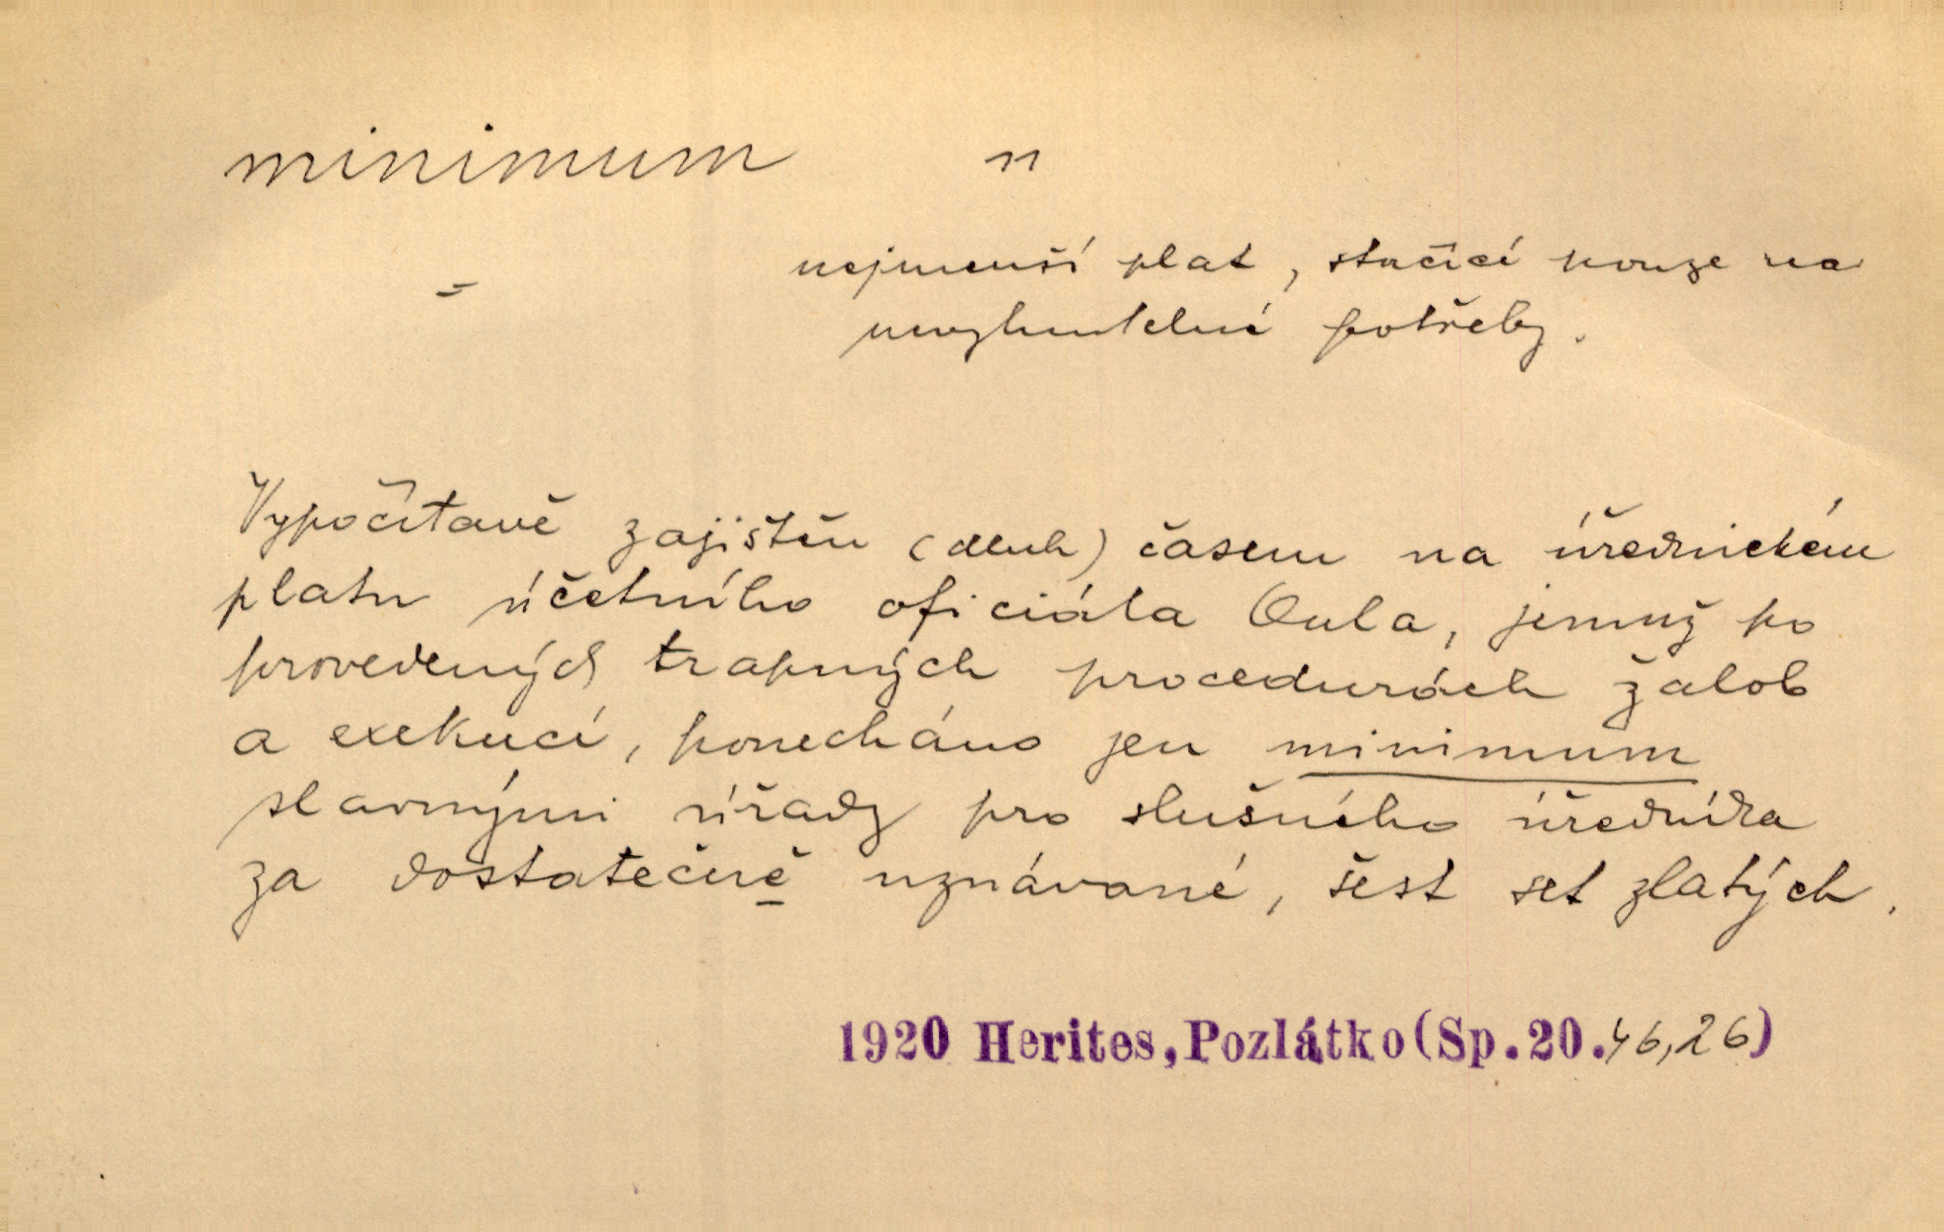 minimum n
= nejmenší plat, stačící pouze na
nevyhnutelné potřeby.
Vypočítavě zajištěn (dluh) časem na úřednickém
platu účetního oficiála Oula, jemuž po
provedených trapných procedurách žalob
a exekucí, ponecháno jen minimum
slavnými úřady pro slušného úředníka
za dostatečně uznávané, šest set zlatých.
1920 Herites, Pozlátko (Sp. 20. 46,26)